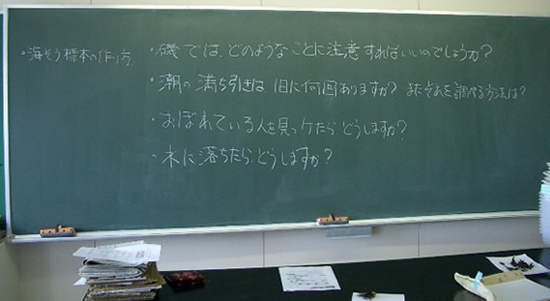 ・海そう標本の作り方
・磯では、どのようなことに注意すればいいのでしょうか?
・潮の満ち引きは1日に何回ありますか? またそれを調べる方法は?
・おぼれている人を見つけたら、どうしますか?
・海に落ちたら、どうしますか?